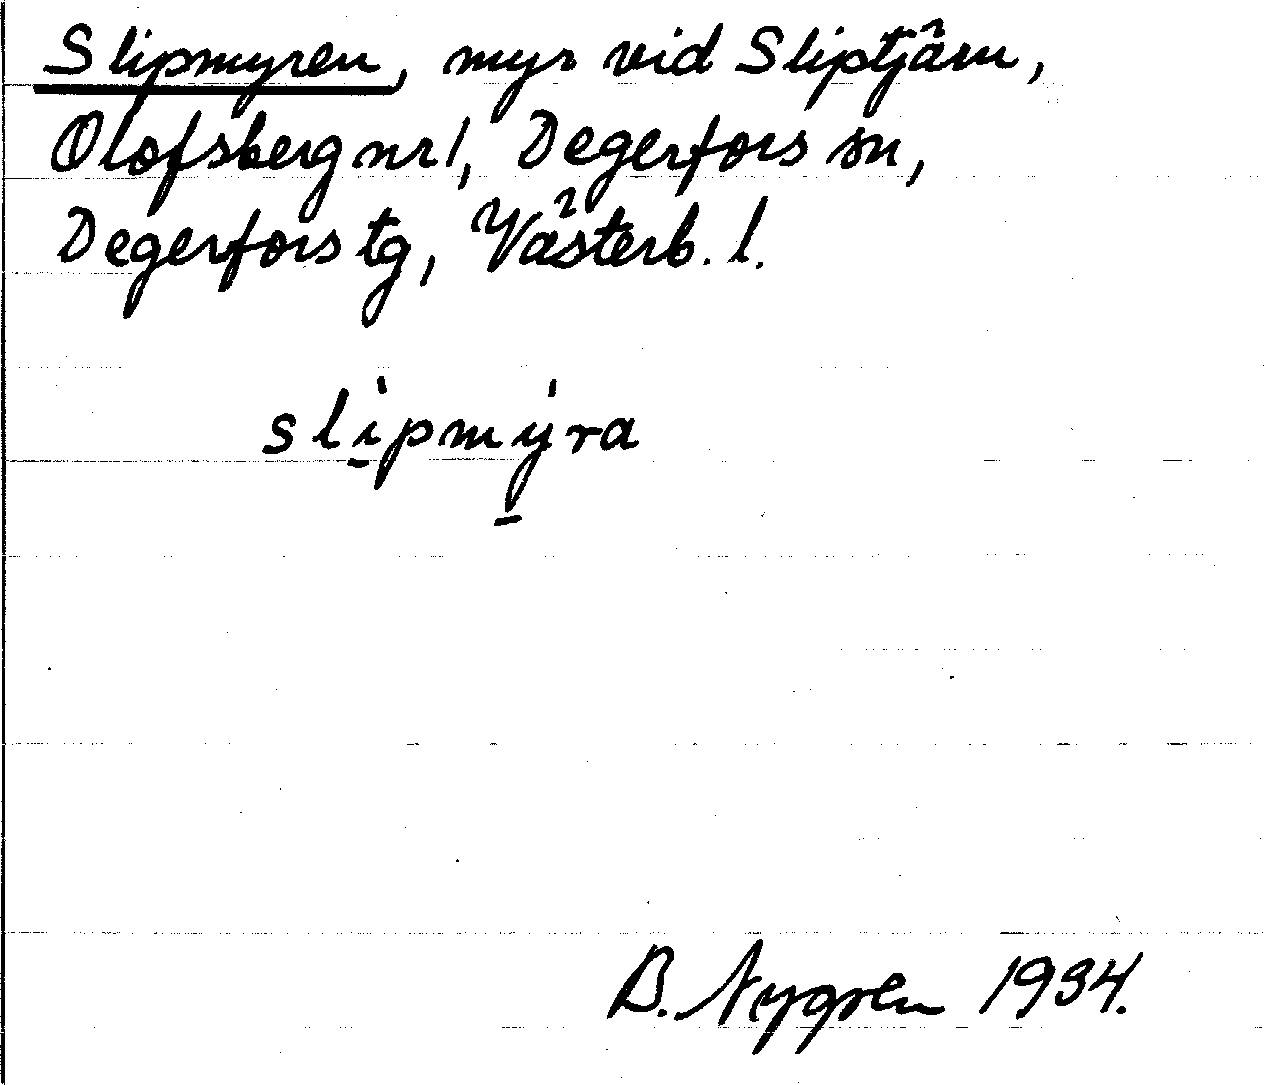 Slipmyren, myr vid Sliptjärn,
Olofsberg nr 1, Degerfors sn,
Degerfors tg, Västerb. l.
sli̱pmý̱ra
B. Nygren 1934.